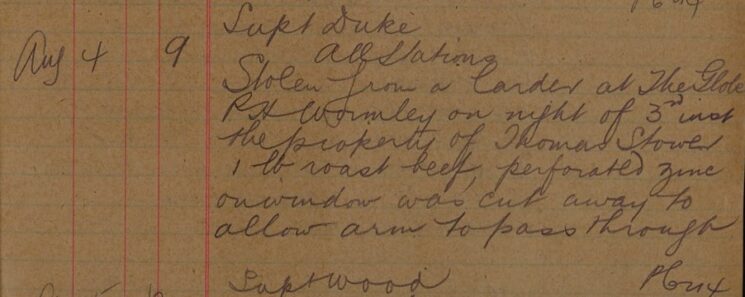 Supt Duke
Aug 4 9 All Stations
Stolen from a larder at The Globe
P H Wormley on night of 3rd inst
the property of Thomas Stower
1 lb roast beef, perforated zinc
on window was cut away to
allow arm to pass through
Supt Wood